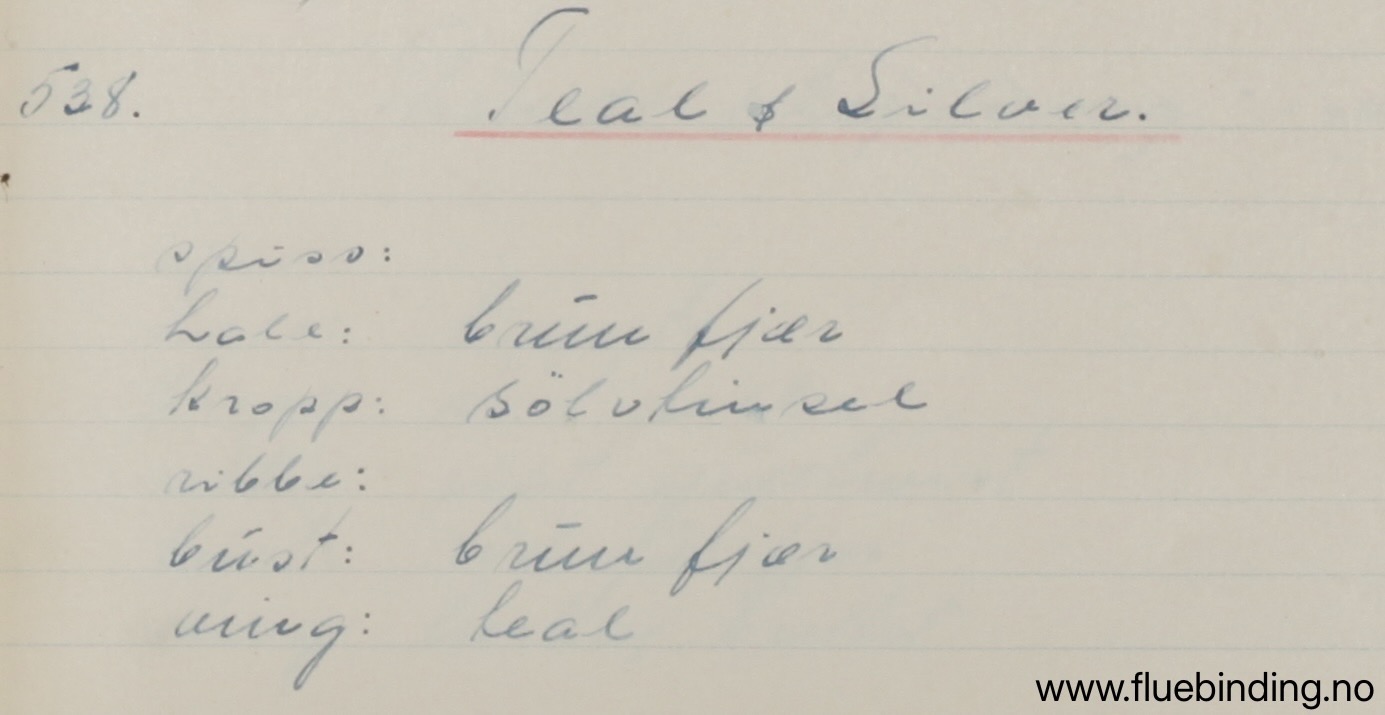 538. Teal & Silver.
spiss:
hale: brun fjær
kropp: sölvtinsel
ribbe:
bust: brun fjær
ving: teal
www.fluebinding.no